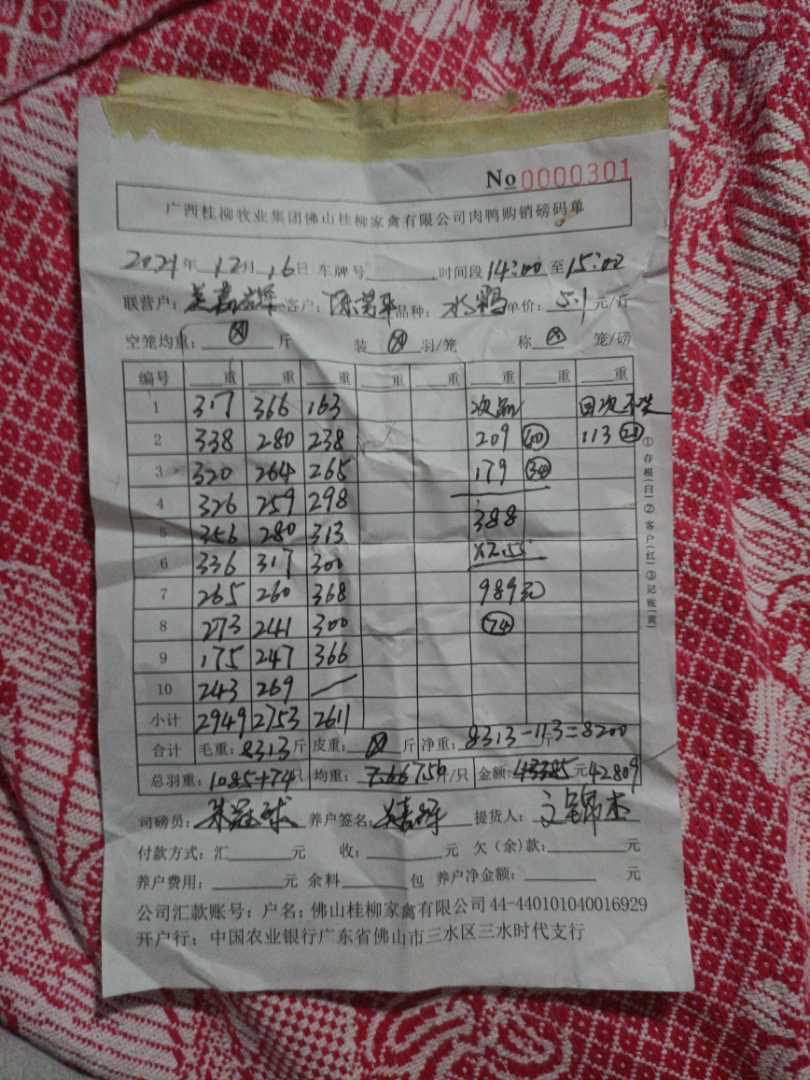 No 0000301
广西桂柳牧业集团佛山桂柳家禽有限公司肉鸭购销磅码单
2021年 12月 16日 车牌号 时间段 14:00 至 15:00
联营户: 嘉辉 客户: 品种: 水鸭 单价: 5.1 元/斤
空笼均重: 斤 装 羽/笼 称 笼/磅
编号 重 重 重 重 重 重 重
1 317 366 163 次品
2 338 280 238 209 113
3 320 264 265 179
4 326 259 298
5 356 280 313 388
6 336 317 300 ×2.55
7 265 260 368 989元
8 273 241 300 74
9 175 247 366
10 243 269 /
小计 2949 2753 2611
合计 毛重: 8313 斤 皮重: 斤 净重: 8313-113=8200 斤
总羽重: 1085+74 只 均重: 7.56 斤/只 金额: 43385 元 42809
司磅员: 养户签名: 嘉辉 提货人:
付款方式: 汇 元 收: 元 欠(余)款: 元
养户费用: 元 余料 包 养户净金额: 元
公司汇款账号: 户名: 佛山桂柳家禽有限公司 44-440101040016929
开户行: 中国农业银行广东省佛山市三水区三水时代支行
①存根(白)②客户(红)③记账(黄)